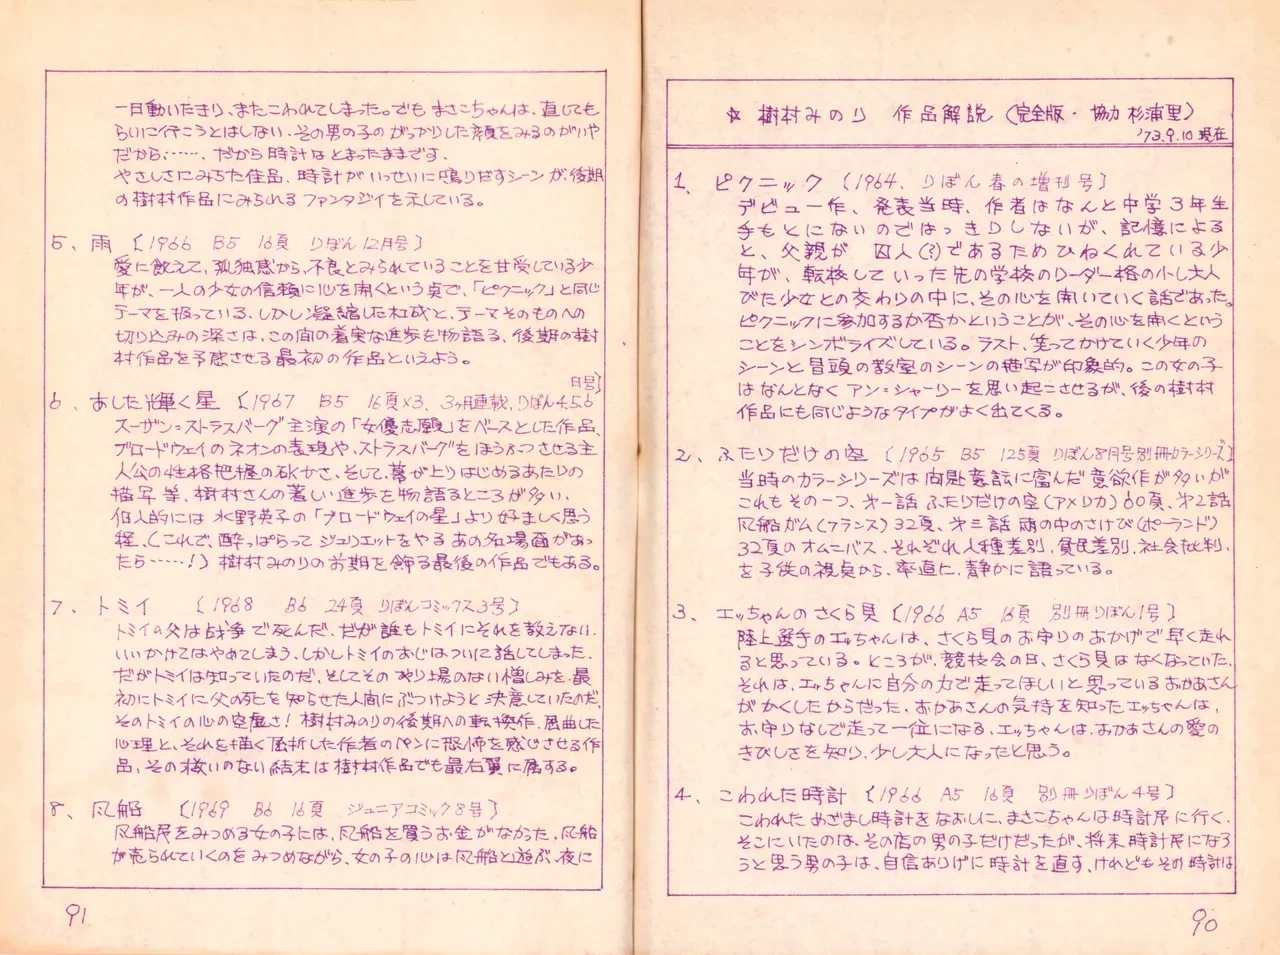 ☆ 樹村みのり 作品解説 (完全版・協力 杉浦里)
'73.9.10 現在
1、ピクニック 〔1964、りぼん春の増刊号〕
デビュー作、発表当時、作者はなんと中学3年生
手もとにないのではっきりしないが、記憶による
と、父親が 囚人(?)であるためひねくれている少
年が、転校していった先の学校のリーダー格の小し大人
びた少女との交わりの中に、その心を開いていく話であった。
ピクニックに参加するか否かということが、その心を開くという
ことをシンボライズしている。ラスト、笑ってかけていく少年の
シーンと冒頭の教室のシーンの描写が印象的。この女の子
はなんとなく アン=シャーリーを思い起こさせるが、後の樹村
作品にも同じようなタイプがよく出てくる。
2、ふたりだけの空 〔1965 B5 125頁 りぼん8月号別冊カラーシリーズ〕
当時のカラーシリーズは 意欲作が多いが
これもその一つ、オ一話 ふたりだけの空(アメリカ) 60頁、オ2話
風船ガム(フランス) 32頁、オ三話 雨の中のさけび(ポーランド)
32頁のオムニバス、それぞれ人種差別、貧民差別、社会批判、
を子供の視点から、率直に、静かに語っている。
3、エッちゃんのさくら貝 〔1966 A5 16頁 別冊りぼん1号〕
陸上選手のエッちゃんは、さくら貝のお守りのおかげで早く走れ
ると思っている。ところが、競技会の日、さくら貝はなくなっていた。
それは、エッちゃんに自分の力で走ってほしいと思っているおかあさん
がかくしたからだった。おかあさんの気持を知ったエッちゃんは、
お守りなしで走って一位になる、エッちゃんは、おかあさんの愛の
きびしさを知り、少し大人になったと思う。
4、こわれた時計 〔1966 A5 16頁 別冊りぼん4号〕
こわれためざまし時計をなおしに、まさこちゃんは時計屋に行く、
そこにいたのは、その店の男の子だけだったが、将来時計屋になろ
うと思う男の子は、自信ありげに時計を直す、けれどもその時計は
90
一日動いたきり、またこわれてしまった。でもまさこちゃんは、直しても
らいに行こうとはしない、その男の子のがっかりした顔をみるのがいや
だから……、だから時計はとまったままです、
やさしさにみちた佳品、時計がいっせいに鳴りだすシーンが、後期
の樹村作品にみられるファンタジイを示している。
5、雨 〔1966 B5 16頁 りぼん12月号〕
愛に飲えて、孤独感から、不良とみられていることを甘受している少
年が、一人の少女の信頼に心を開くという点で、「ピクニック」と同じ
テーマを扱っている、しかし凝縮した構成と、テーマそのものへの
切り込みの深さは、この間の着実な進歩を物語る、後期の樹
村作品を予感させる最初の作品といえよう。
6、あした輝く星 〔1967 B5 16頁×3、3ヶ月連載、りぼん4.5.6
月号〕
スーザン=ストラスバーグ主演の「女優志願」をベースとした作品、
ブロードウェイのネオンの表現や、ストラスバーグをほうふつさせる主
人公の性格把握の確かさ、そして、幕が上りはじめるあたりの
描写等、樹村さんの著しい進歩を物語るところが多い、
個人的には 水野英子の「ブロードウェイの星」より好ましく思う
程、(これで、酔っぱらって ジュリエットをやる あの名場面があっ
たら……!) 樹村みのりの前期を飾る最後の作品でもある。
7、トミイ 〔1968 B6 24頁 りぼんコミックス3号〕
トミイの父は戦争で死んだ、だが誰もトミイにそれを教えない、
いいかけてはやめてしまう、しかしトミイのおじはついに話してしまった、
だがトミイは知っていたのだ、そしてそのやり場のない憎しみを、最
初にトミイに父の死を知らせた人間にぶつけようと決意していたのだ、
そのトミイの心の空虚さ! 樹村みのりの後期への転換作、屈曲した
心理と、それを描く屈折した作者のペンに恐怖を感じさせる作
品、その救いのない結末は樹村作品でも最右翼に属する。
8、風船 〔1969 B6 16頁 ジュニアコミック8号〕
風船屋をみつめる女の子には、風船を買うお金がなかった、風船
が売られていくのをみつめながら、女の子の心は風船と遊ぶ、夜に
91